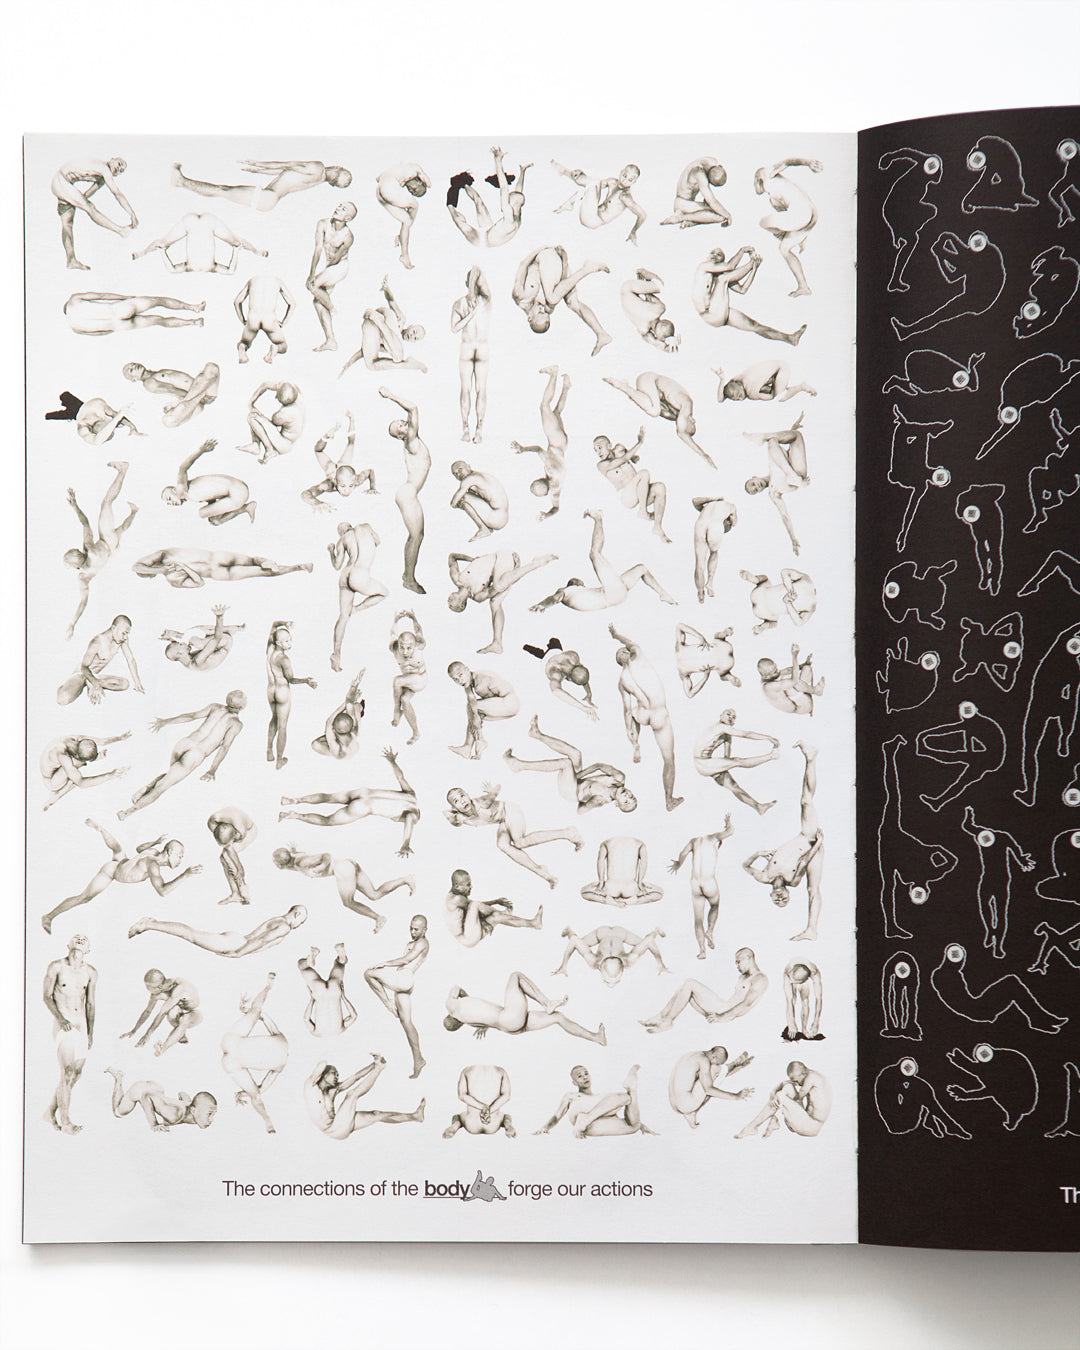 The connections of the body forge our actions
Th